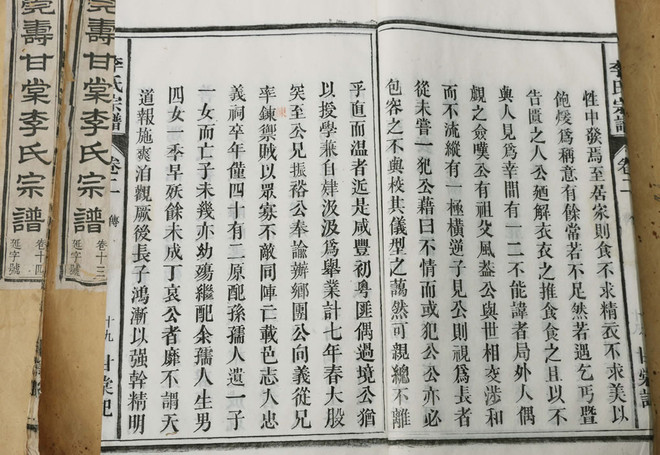 李氏宗譜 卷二 甘棠記
性中發焉至居家則食不求精衣不求美以
飽煖爲稱意有餘常若不足然若遇乞丐暨
告匱之人公廼解衣衣之推食食之且以不
與人見爲幸間有一二不能諱者局外人偶
覷之僉嘆公有祖父風葢公與世相交渉和
而不流縱有一極橫逆子見公則視爲長者
從未嘗一犯公藉曰不情而或犯公公亦必
包容之不與校其儀型之藹然可親總不離
乎直而溫者近是咸豐初粤匪偶過境公猶
以授學兼自肄汲汲爲舉業計七年春大股
突至公兄振裕公奉諭辦鄉團公向義從兄
率鍊禦賊以眾寡不敵同陣亡載邑志人忠
義祠卒年僅四十有二原配孫孺人遺一子
一女而亡子未幾亦幼殤繼配余孺人生男
四女一季早殀餘未成丁哀公者靡不謂天
道報施爽洎觀厥後長子鴻漸以强幹精明
李氏宗譜 卷二 傳 十九 甘棠記
壽甘棠李氏宗譜 卷十三 延字號
壽甘棠李氏宗譜 卷十四 延字號